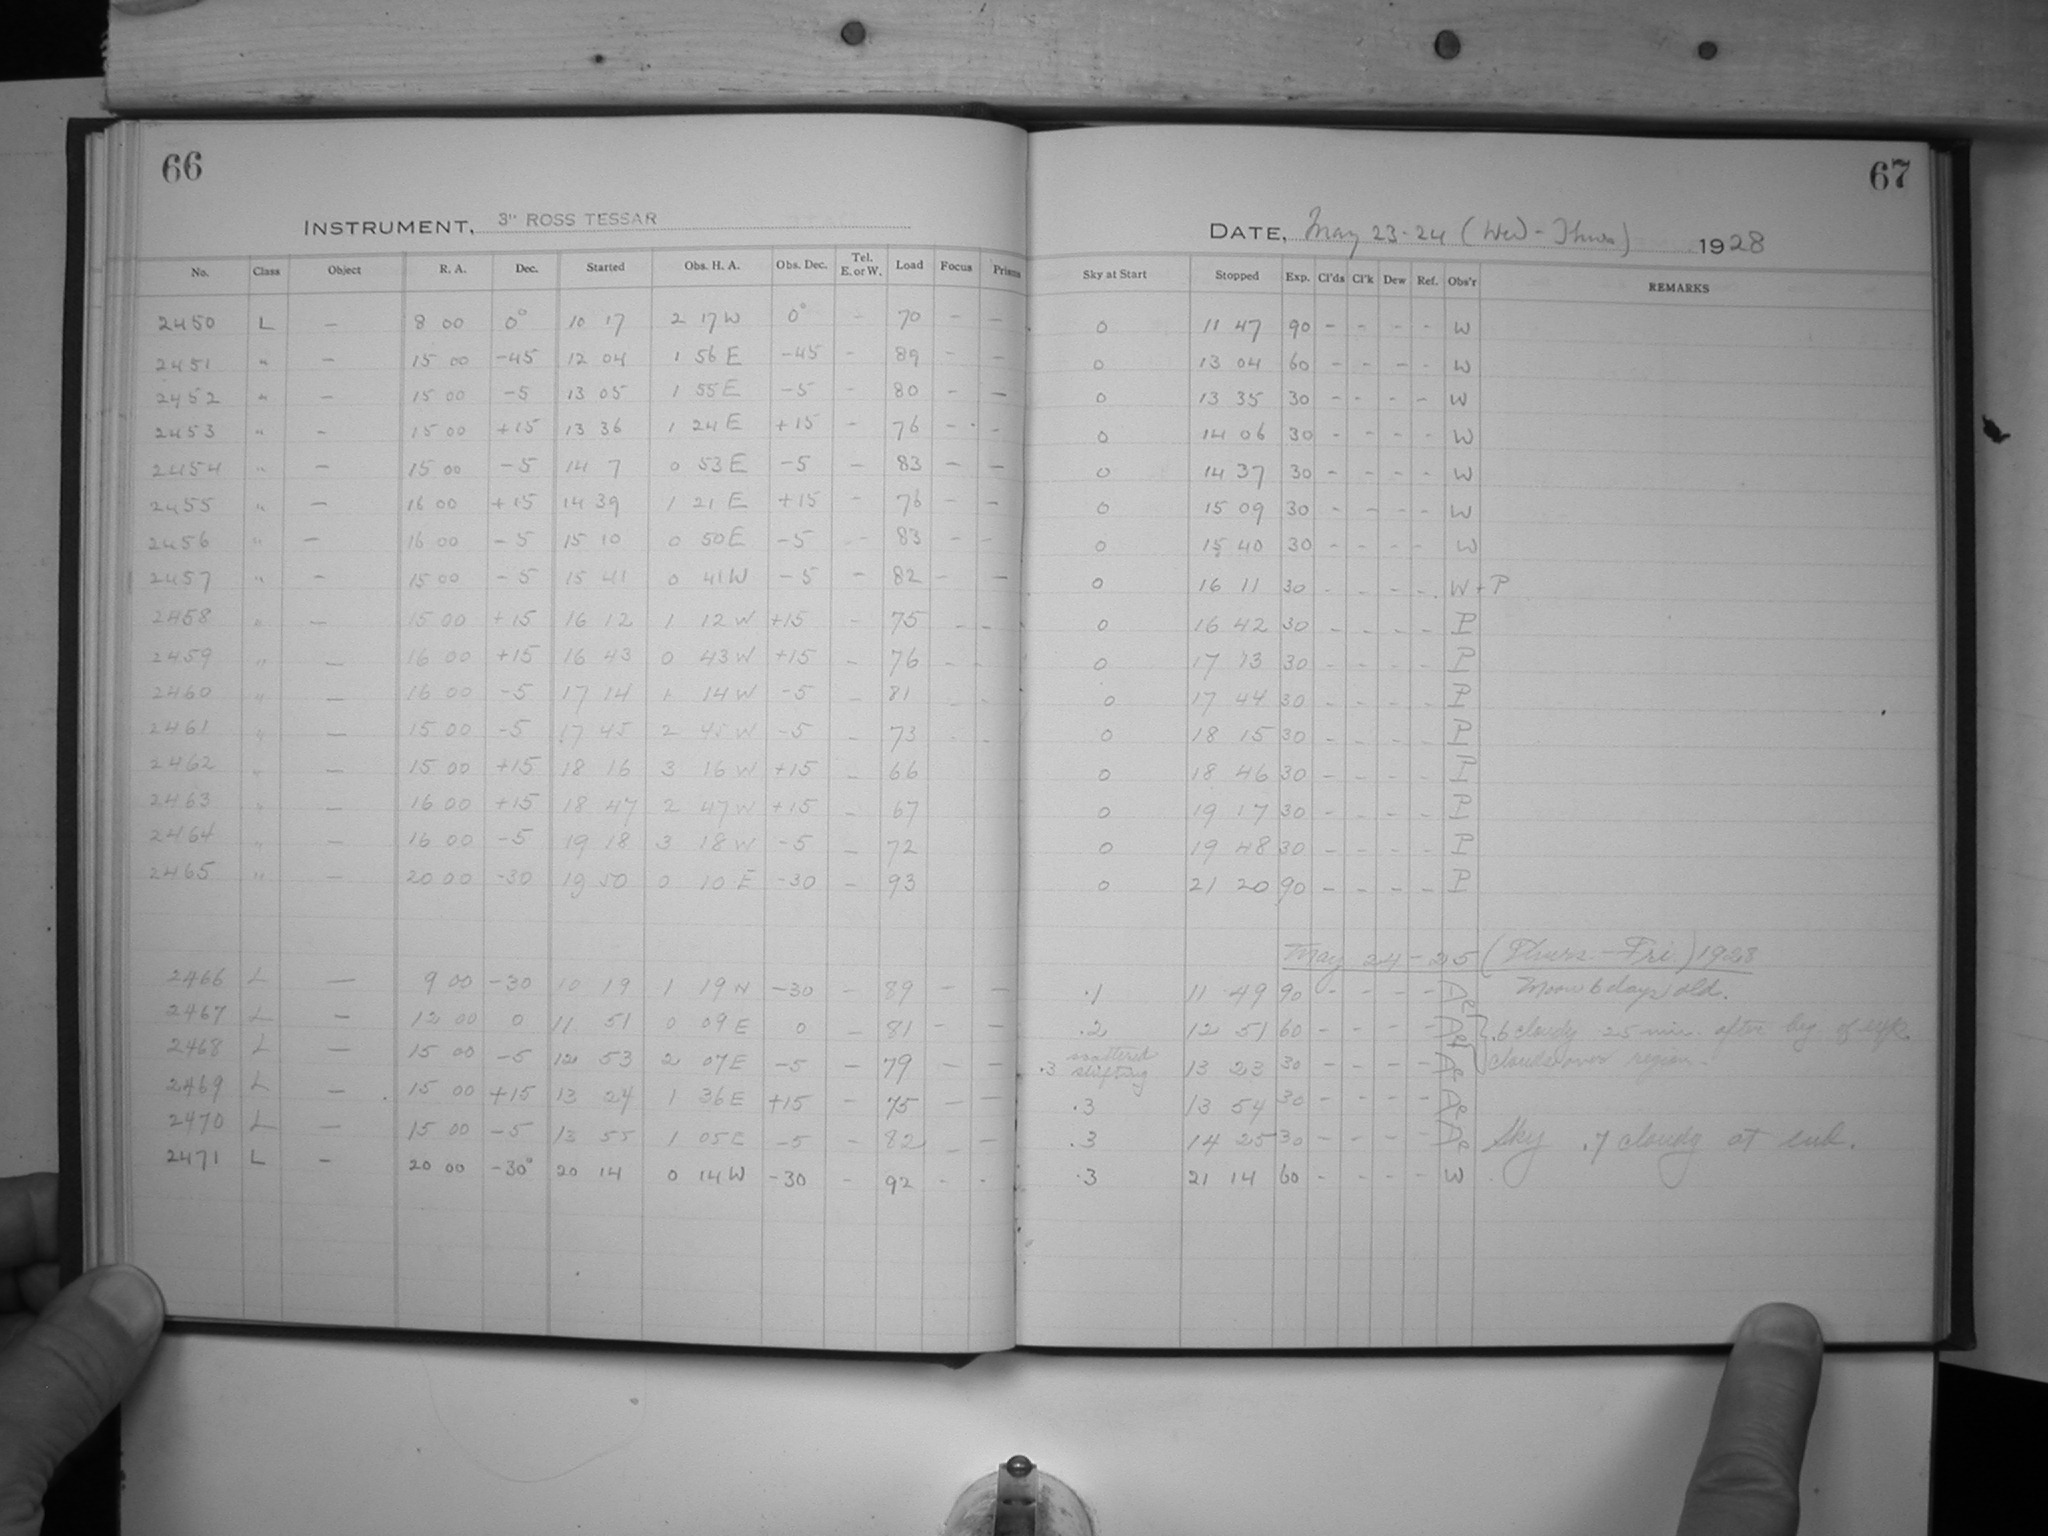 66
INSTRUMENT, 3" ROSS TESSAR
No. Class Object R. A. Dec. Started Obs. H. A. Obs. Dec. Tel. E. or W. Load Focus Prisms
2450 L — 8 00 0° 10 17 2 17 W 0° - 70 - -
2451 " — 15 00 -45 12 04 1 56 E -45 - 89 - -
2452 " — 15 00 -5 13 05 1 55 E -5 - 80 - -
2453 " — 15 00 +15 13 36 1 24 E +15 - 76 - -
2454 " — 15 00 -5 14 7 0 53 E -5 - 83 - -
2455 " — 16 00 +15 14 39 1 21 E +15 - 76 - -
2456 " — 16 00 -5 15 10 0 50 E -5 - 83 - -
2457 " — 15 00 -5 15 41 0 41 W -5 - 82 - -
2458 " — 15 00 +15 16 12 1 12 W +15 - 75 - -
2459 " — 16 00 +15 16 43 0 43 W +15 - 76 - -
2460 " — 16 00 -5 17 14 1 14 W -5 - 81 - -
2461 " — 15 00 -5 17 45 2 45 W -5 - 73 - -
2462 " — 15 00 +15 18 16 3 16 W +15 - 66
2463 " — 16 00 +15 18 47 2 47 W +15 - 67
2464 " — 16 00 -5 19 18 3 18 W -5 - 72
2465 " — 20 00 -30 19 50 0 10 E -30 - 93
2466 L — 9 00 -30 10 19 1 19 W -30 - 89 - -
2467 L — 12 00 0 11 51 0 09 E 0 - 81 - -
2468 L — 15 00 -5 12 53 2 07 E -5 - 79 - -
2469 L — 15 00 +15 13 24 1 36 E +15 - 75 - -
2470 L — 15 00 -5 13 55 1 05 E -5 - 82 - -
2471 L — 20 00 -30° 20 14 0 14 W -30 - 92 - -
67
DATE, May 23-24 (Wed - Thurs) 1928
Sky at Start Stopped Exp. Cl'ds Cl'k Dew Ref. Obs'r REMARKS
0 11 47 90 - - - - W
0 13 04 60 - - - - W
0 13 35 30 - - - - W
0 14 06 30 - - - - W
0 14 37 30 - - - - W
0 15 09 30 - - - - W
0 15 40 30 - - - - W
0 16 11 30 - - - - W + P
0 16 42 30 - - - - P
0 17 13 30 - - - - P
0 17 44 30 - - - - P
0 18 15 30 - - - - P
0 18 46 30 - - - - P
0 19 17 30 - - - - P
0 19 48 30 - - - - P
0 21 20 90 - - - - P
May 24-25 (Thurs - Fri) 1928
.1 11 49 90 - - - - De Moon 6 days old.
.2 12 51 60 - - - - De .6 cloudy 25 min. after beg of exp.
.3 scattered shifting 13 23 30 - - - - De clouds over region.
.3 13 54 30 - - - - De
.3 14 25 30 - - - - De Sky .7 cloudy at end.
.3 21 14 60 - - - - W